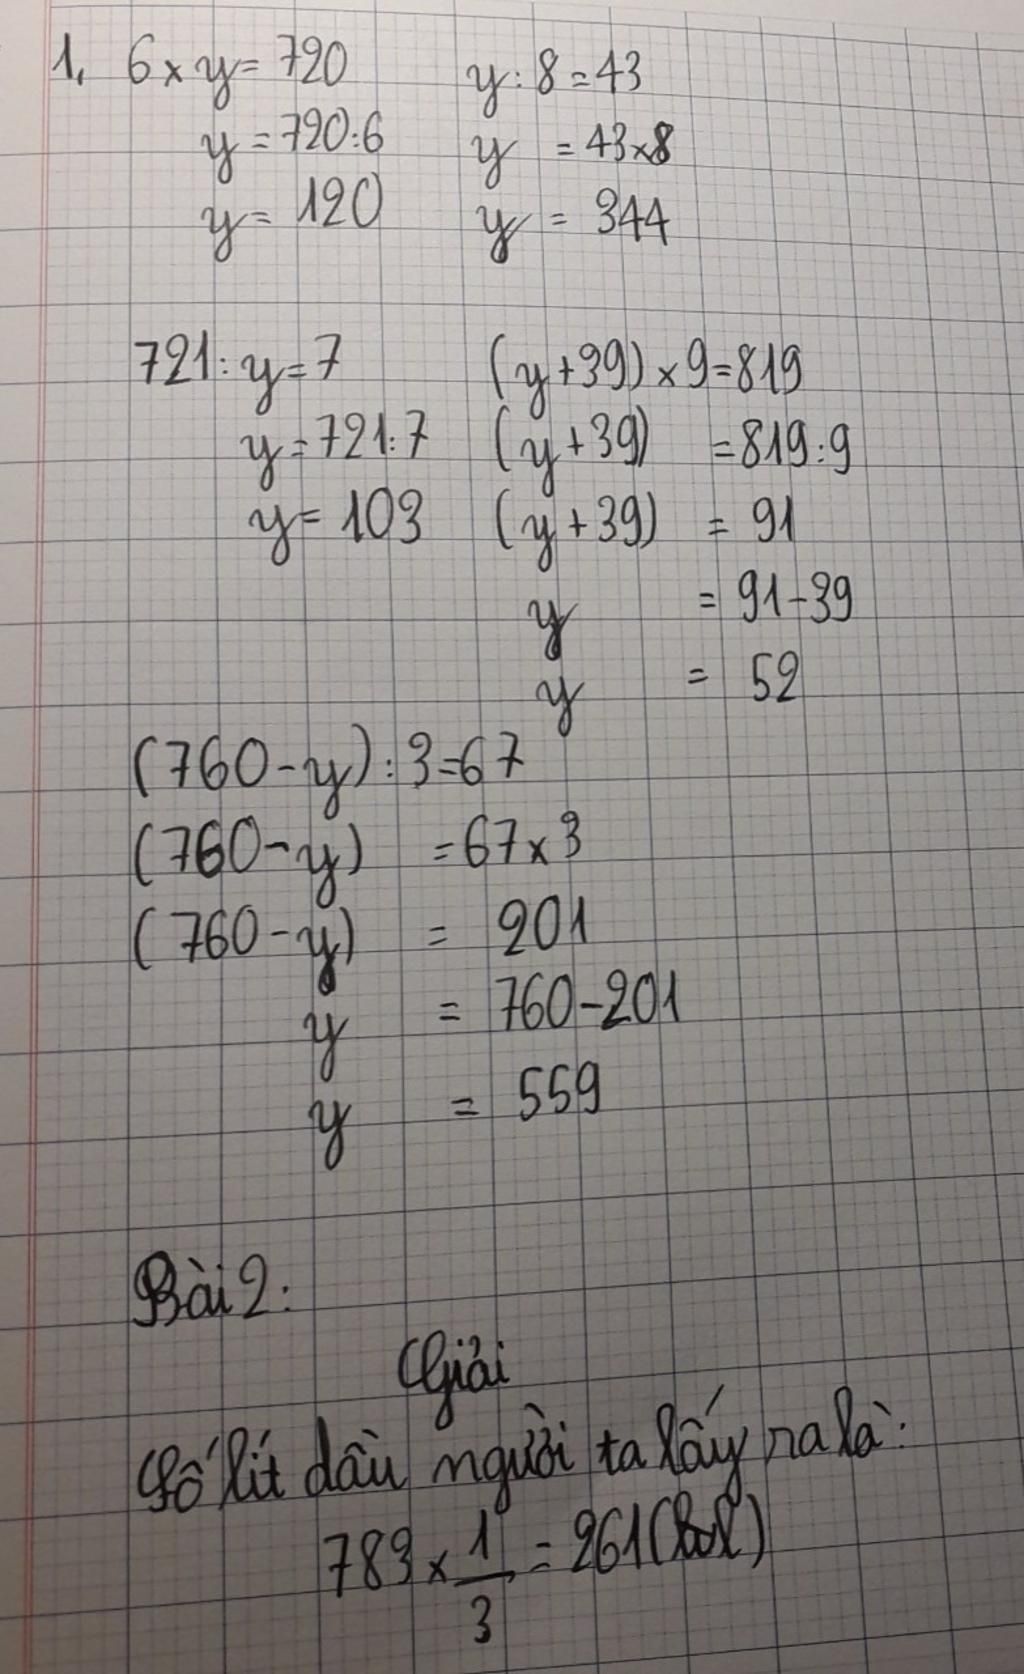 1, 6 x y = 720 y : 8 = 43
y = 720 : 6 y = 43 x 8
y = 120 y = 344
721 : y = 7 (y + 39) x 9 = 819
y = 721 : 7 (y + 39) = 819 : 9
y = 103 (y + 39) = 91
y = 91 - 39
y = 52
(760 - y) : 3 = 67
(760 - y) = 67 x 3
(760 - y) = 201
y = 760 - 201
y = 559
Bài 2:
Giải
Số lít dầu người ta lấy ra là:
783 x 1/3 = 261 (